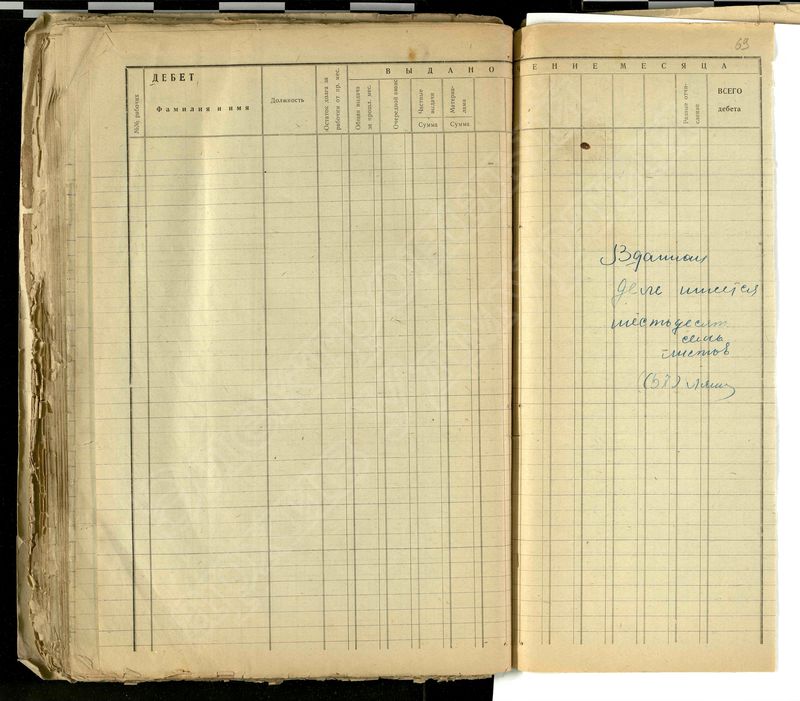 69
ВЫДАНО
ЕНИЕ МЕСЯЦА
№№ рабочих
ДЕБЕТ
Фамилия и имя
Должность
Остаток долга за рабочим от пр. мес.
Общая выдача за прошл. мес.
Очередной аванс
Частные выдачи
Сумма
Материалами
Сумма
Разные отчисления
ВСЕГО
дебета
В данном
деле имеется
шестьдесят
семь
листов
(67)